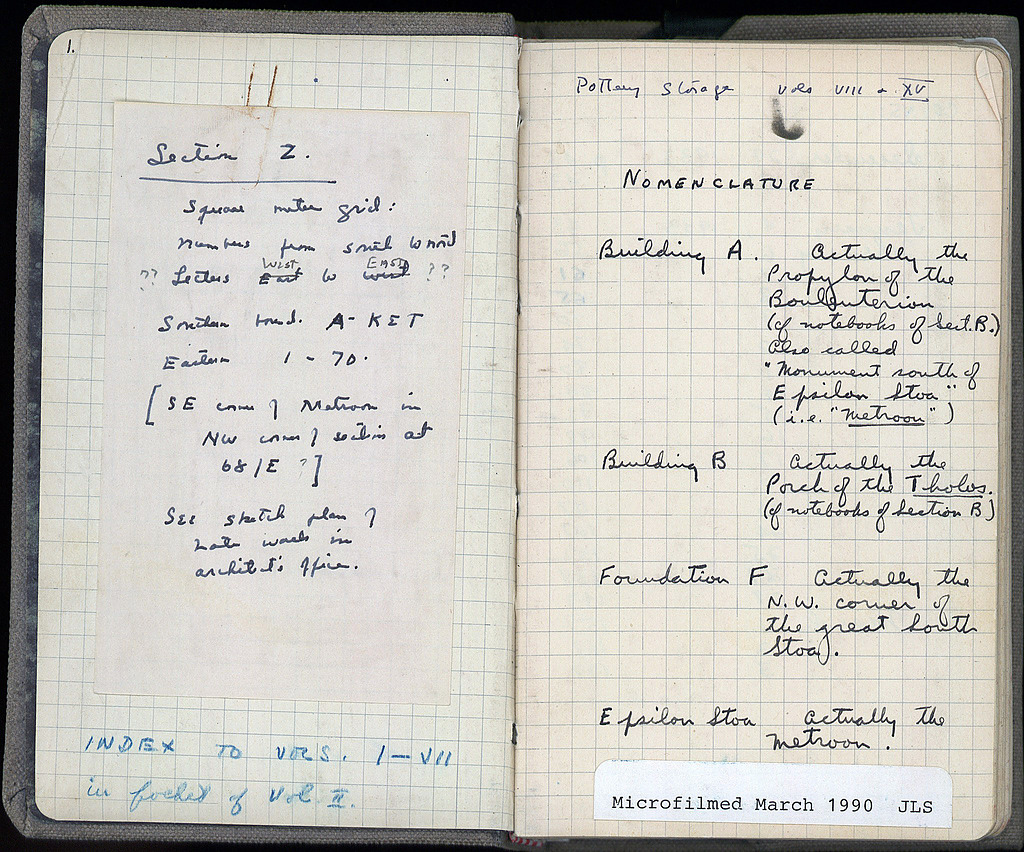 1.
Section Z.
Square meter grid:
numbers from south to north
West East
?? Letters East to West ??
Southern bound. A - KET
Eastern 1 - 70.
[SE corner of Metroon in
NW corner of section at
68/E ?]
See sketch plan of
Late walls in
architect's office.
INDEX TO VOLS. I - VII
in pocket of Vol. II.
Pottery Storage vols VIII & XV
NOMENCLATURE
Building A. Actually the
Propylon of the
Bouleuterion
(cf notebooks of Sect. B.)
Also called
"Monument south of
Epsilon Stoa"
(i.e. "Metroon")
Building B Actually the
Porch of the Tholos.
(cf notebooks of Section B)
Foundation F Actually the
N.W. corner of
the great South
Stoa).
Epsilon Stoa Actually the
Metroon.
Microfilmed March 1990 JLS